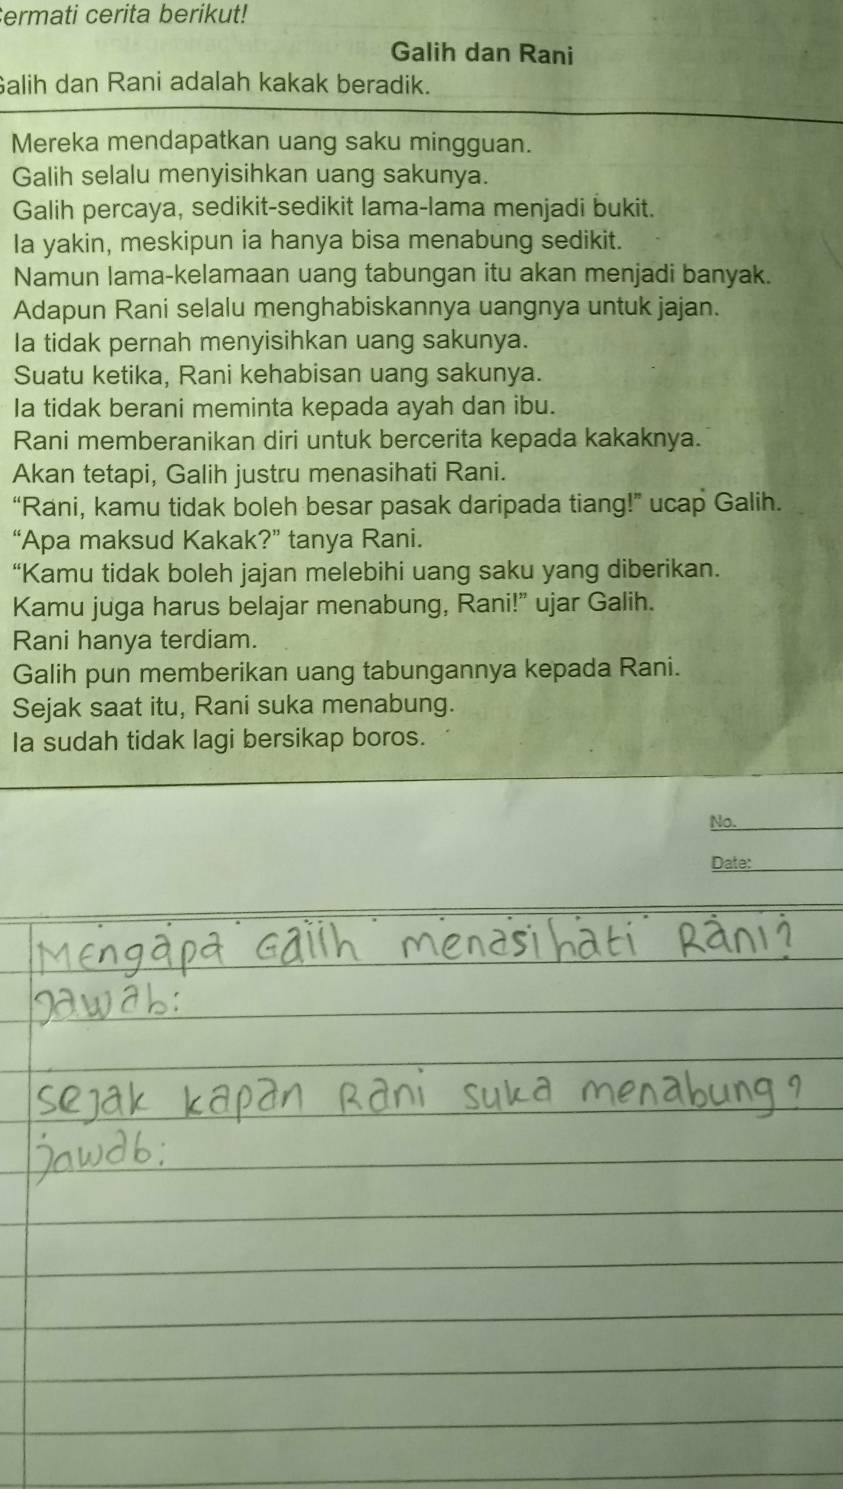 Cermati cerita berikut!
Galih dan Rani
Galih dan Rani adalah kakak beradik.
Mereka mendapatkan uang saku mingguan.
Galih selalu menyisihkan uang sakunya.
Galih percaya, sedikit-sedikit lama-lama menjadi bukit.
Ia yakin, meskipun ia hanya bisa menabung sedikit.
Namun lama-kelamaan uang tabungan itu akan menjadi banyak.
Adapun Rani selalu menghabiskannya uangnya untuk jajan.
Ia tidak pernah menyisihkan uang sakunya.
Suatu ketika, Rani kehabisan uang sakunya.
Ia tidak berani meminta kepada ayah dan ibu.
Rani memberanikan diri untuk bercerita kepada kakaknya.
Akan tetapi, Galih justru menasihati Rani.
“Rani, kamu tidak boleh besar pasak daripada tiang!” ucap Galih.
“Apa maksud Kakak?” tanya Rani.
“Kamu tidak boleh jajan melebihi uang saku yang diberikan.
Kamu juga harus belajar menabung, Rani!” ujar Galih.
Rani hanya terdiam.
Galih pun memberikan uang tabungannya kepada Rani.
Sejak saat itu, Rani suka menabung.
Ia sudah tidak lagi bersikap boros.
No.
Date:
Mengapa Galih menasihati Rani?
jawab:
sejak kapan Rani suka menabung?
jawab: